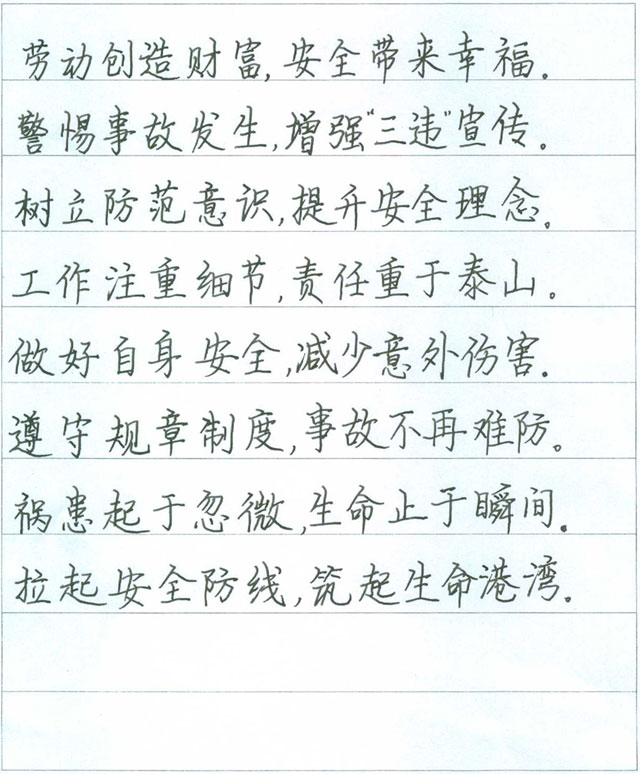 劳动创造财富,安全带来幸福.
警惕事故发生,增强“三违”宣传.
树立防范意识,提升安全理念.
工作注重细节,责任重于泰山.
做好自身安全,减少意外伤害.
遵守规章制度,事故不再难防.
祸患起于忽微,生命止于瞬间.
拉起安全防线,筑起生命港湾.